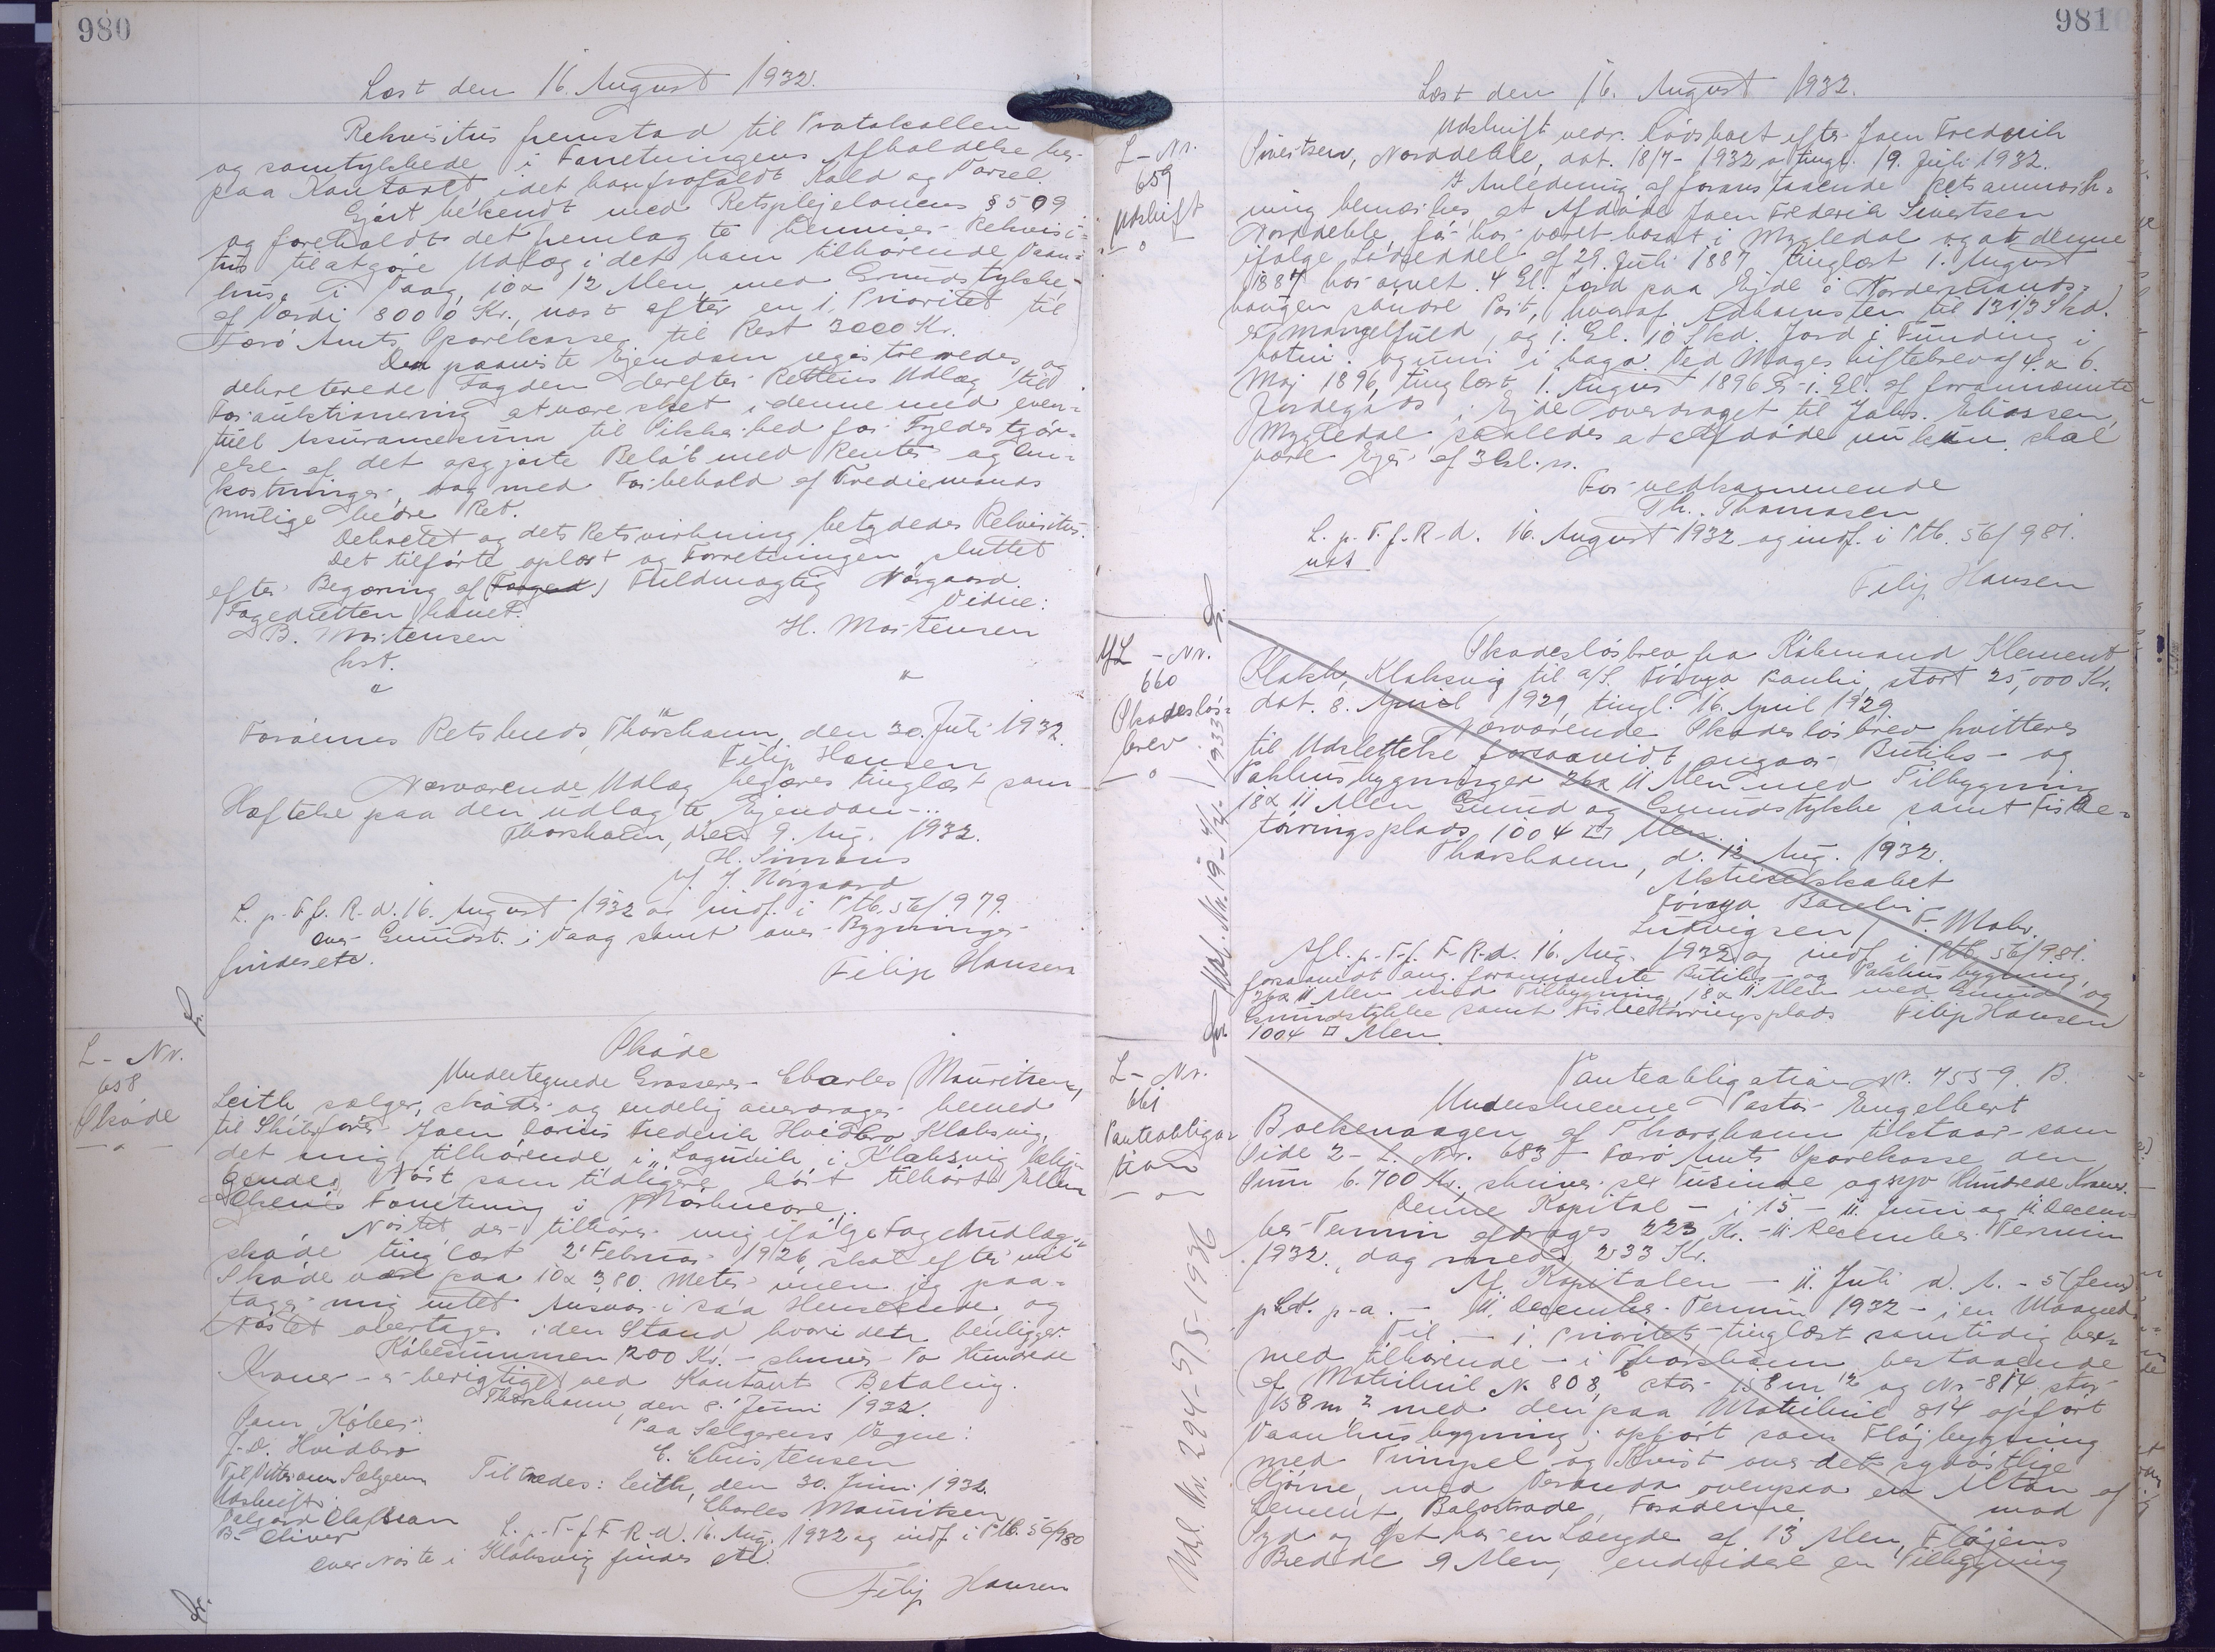 980
Læst den 16. August 1932.
Rekvisitus fremstod til Protokollen
og samtykkede i Forretningens Afholdelse her
paa Kontoret idet han frafaldt Kald og Varsel.
Gjort bekendt med Retsplejelovens § 509
og foreholdt det fremlagte henviser Rekvisi=
tus til at göre Udlæg i det ham tilhörende Vaan=
hus i Vaag, 10 x 12 Alen, med Grundstykke
af Værdi 8000 Kr., næst efter en 1. Prioritet til
Færö Amts Sparekasse, til Rest 3000 Kr.
Den paaviste Ejendom registreredes, og
dekreterede Fogden derefter Rettens Udlæg til
Forauktionering at være sket i denne med even=
tuel Assurancesum til Sikkerhed for Fyldestgör=
else af det opgjorte Belöb med Renter og Om=
kostninger, dog med Forbehold af Trediemands
mulige bedre Ret.
Dekretet og dets Retsvirkning betydedes Rekvisitus.
Det tilförte oplæst og Forretningen sluttet
efter Begæring af Fuldmægtig Nörgaard.
Fogedretten hævet. Vidne:
B. Mortensen H. Mortensen
hst.
" "
Færöernes Retskreds, Thorshavn, den 30. Juli 1932.
Filip Hansen
Nærværende Udlæg begæres tinglæst som
Hæftelse paa den udlagte Ejendom.
Thorshavn, den 9. Aug. 1932.
H. Simons
J. Nörgaard
L. p. T. f. F. R. d. 16. August 1932 og indf. i Ptb. 56/979.
over Grundst. i Vaag samt over Bygninger
findes etc. Filip Hansen
L - Nr.
658
Sköde
- " -
Sköde
Undertegnede Grosserer Charles Mouritsen,
Leith sælger, sköder og endelig overdrager herved
til Skibsförer Joen Doricis Frederik Hvidbro, Klaksvig,
det mig tilhörende i "Lagnuvik" i Klaksvig belig=
gende Nöst som tidligere har tilhört
Forretning i
Nöstet, der tilhörer mig ifölge Fogedudlægs=
sköde tinglæst 2. Februar 1926 skal efter mit
Sköde være paa 10 x 3,80 Meter, uden jeg paa=
tager mig intet Ansvar i saa Henseende, og
Nöstet overtages i den Stand hvori det henligger.
Köbesummen 200 Kr. - skriver To Hundrede
Kroner - er berigtiget ved Kontant Betaling.
Thorshavn, den 8. Juni 1932.
Som Köber: Paa Sælgerens Vegne:
J. D. Hvidbro C. Christensen
Til Vitterlighed om Sælgerens Tiltrædes: Leith, den 30. Juni 1932.
Underskrift: Charles Mouritsen
Valgard Clafsson L. p. T. f. F. R. d. 16. Aug. 1932 og indf. i Ptb. 56/980
B. Oliver
over Nöstet i Klaksvig findes etc.
Filip Hansen
981
Læst den 16. August 1932.
L - Nr.
659
Udskrift
- " -
Udskrift vedr. Dödsboet efter Joen Frederik
Sivertsen, Norddeble, dat. 18/7 - 1932 og tingl. 19. Juli 1932.
I Anledning af foranstaaende Retsanmærk=
ning bemærkes, at Afdöde Joen Frederik Sivertsen
Norddeble, för har været bosat i Mygledal og at denne
ifölge Lodseddel af 29. Juli 1887, tinglæst 1. August
1887 har arvet 4 Gl. Jord paa Ejde i Nordermands=
haugen söndre Part, hvoraf Adkomsten til 13 1/3 Skd.
er mangelfuld, og 1 Gl. 10 Skd. Jord i Funding i
botni og uni i haga. Ved Mageskiftebrev af 4. & 6.
Maj 1896, tinglæst 1. August 1896 er 1 Gl. af forannævnte
Jordegods i Ejde overdraget til Johs. Eliassen,
Mygledal saaledes at Afdöde nu kun skal
være Ejer af 3 Gl. m.
For vedkommende
Th. Thomasen
L. p. T. f. F. R. d. 16. August 1932 og indf. i Ptb. 56/981.
Filip Hansen
L - Nr.
660
Skadeslös=
brev
- " -
Skadeslösbrev fra Köbmand Klement
Klakk, Klaksvig til A/S. Föroya Banki, stort 25,000 Kr.
dat. 8. April 1929, tingl. 16. April 1929
Nærværende Skadeslösbrev kvitteres
til Udslettelse forsaavidt angaar Butiks- og
Pakhusbygninger 26 x 11 Alen med Tilbygning
18 x 11 Alen Grund og Grundstykke samt Fiske=
törringsplads 1004 □ Alen.
Thorshavn, d. 12. Aug. 1932.
Aktieselskabet
Föroya Banki
Ludvigsen / F. Mohr.
Afl. p. T. f. F. R. d. 16. Aug. 1932 og indf. i Ptb. 56/981.
forsaavidt ang. forannævnte Butiks- og Pakhusbygning,
26 x 11 Alen med Tilbygning 18 x 11 Alen med Grund og
Grundstykke samt Fisketörringsplads Filip Hansen
1004 □ Alen.
L - Nr.
661
Panteobliga=
tion
- " -
Udsl. Nr. 294 - 5/5 - 1936
Panteobligation Nr. 7559. B.
Underskrevne Pastor Engelbert
Bæckenaagen af Thorshavn tilstaar som
Side 2 - L. Nr. 683 - Færö Amts Sparekasse den
Sum 6.700 Kr. skriver sex Tusinde og syv Hundrede Kroner.
Denne Kapital - i 15 - 11. Juni og 11. Decem=
ber Termin afdrages 223 Kr. - 11. December Termin
1932, dog med 233 Kr.
Af Kapitalen - 11. Juli d. A. - 5 (fem)
pCt. p. a. - 11. December Termin 1932 - i en Maaned.
Til - 1 Prioritet - tinglæst samtidig her=
med tilhörende - i Thorshavn bestaaende
af Matrikul Nr. 808, stor 158 m² og Nr. 814, stor
158 m² med den paa Matrikul 814 opfört
Vaanhusbygning; opfört som Flöjbygning
med Frimpel og Kvist over det sydöstlige
Hjörne, med Veranda ovenpaa en Altan af
Cement, Balustrade, Facaderne mod
Syd og Öst har en Længde af 13 Alen, Flöjens
Bredde 9 Alen, endvidere en Tilbygning